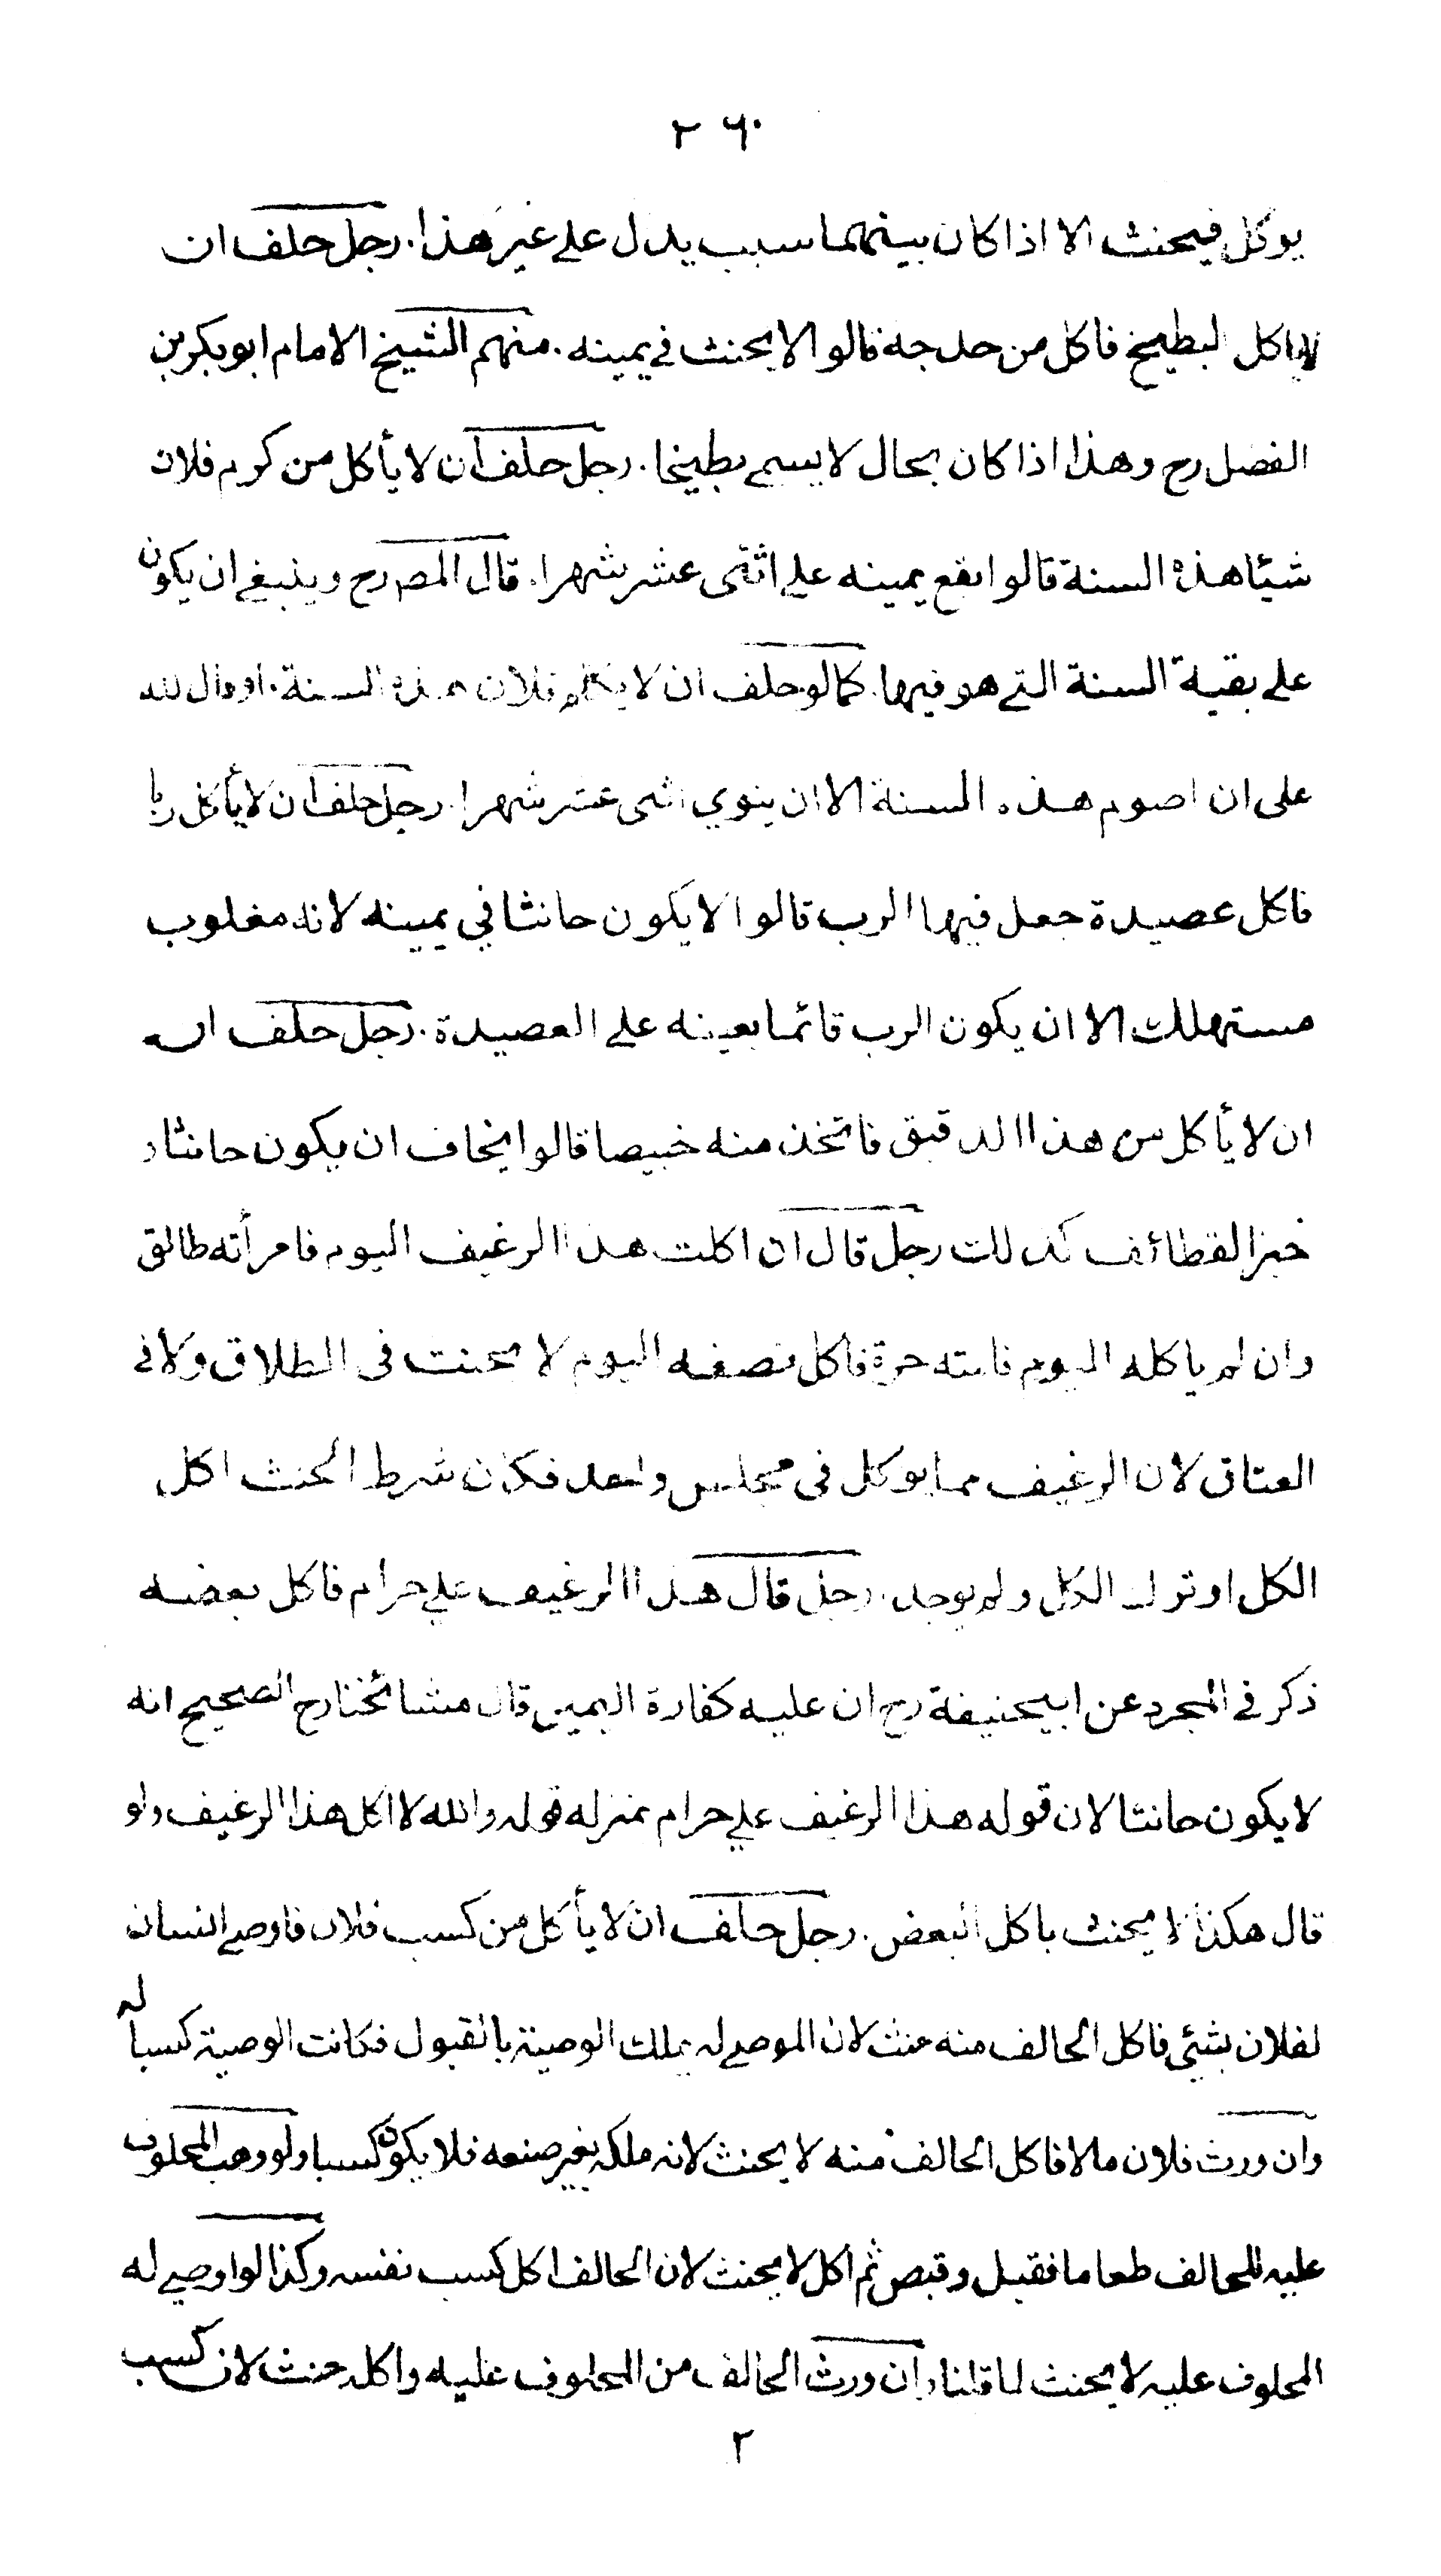 ٢٦٠
يوكل فيحنث الا اذا كان بينهما سبب يدل على غير هذا. رجل حلف ان
لا ياكل البطيخ فاكل من حدجة قالوا لا يحنث في يمينه. منهم الشيخ الامام ابو بكر بن
الفضل رح وهذا اذا كان بحال لا يسمى بطيخا. رجل حلف ان لا يأكل من كرم فلان
شيئا هذه السنة قالوا يقع يمينه على اثنى عشر شهرا. قال المص رح وينبغي ان يكون
على بقية السنة التي هو فيها. كما لو حلف ان لا يكلم فلان هذه السنة. او قال لله
على ان اصوم هذه السنة الا ان ينوي اثنى عشر شهرا. رجل حلف ان لا يأكل ربا
فاكل عصيدة جعل فيها الرب قالوا لا يكون حانثا في يمينه لانه مغلوب
مستهلك الا ان يكون الرب قائما بعينه على العصيدة. رجل حلف ان
ان لا يأكل من هذا الدقيق فاتخذ منه خبيصا قالوا يخاف ان يكون حانثا و
خبز القطائف كذلك رجل قال ان اكلت هذا الرغيف اليوم فامرأته طالق
وان لم ياكله اليوم فامته حرة فاكل نصفه اليوم لا يحنث في الطلاق ولا في
العتاق لان الرغيف مما يوكل في مجلس واحد فكان شرط الحنث اكل
الكل او ترك الكل ولم يوجد. رجل قال هذا الرغيف علي حرام فاكل بعضه
ذكر في المجرد عن ابيحنيفة رح ان عليه كفارة اليمين قال مشائخنا رح الصحيح انه
لا يكون حانثا لان قوله هذا الرغيف علي حرام بمنزلة قوله والله لا اكل هذا الرغيف ولو
قال هكذا لا يحنث باكل البعض. رجل حلف ان لا يأكل من كسب فلان فاوصى انسان
لفلان بشئ فاكل الحالف منه حنث لان الموصى له يملك الوصية بالقبول فكانت الوصية كسبا له
وان ورث فلان مالا فاكل الحالف منه لا يحنث لانه ملكه بغير صنعه فلا يكون كسبا ولو وهب المحلوف
عليه للحالف طعاما فقبل وقبض ثم اكل لا يحنث لان الحالف اكل كسب نفسه وكذا لو اوصى له
المحلوف عليه لا يحنث لما قلنا وان ورث الحالف من المحلوف عليه واكله حنث لان كسب
٢